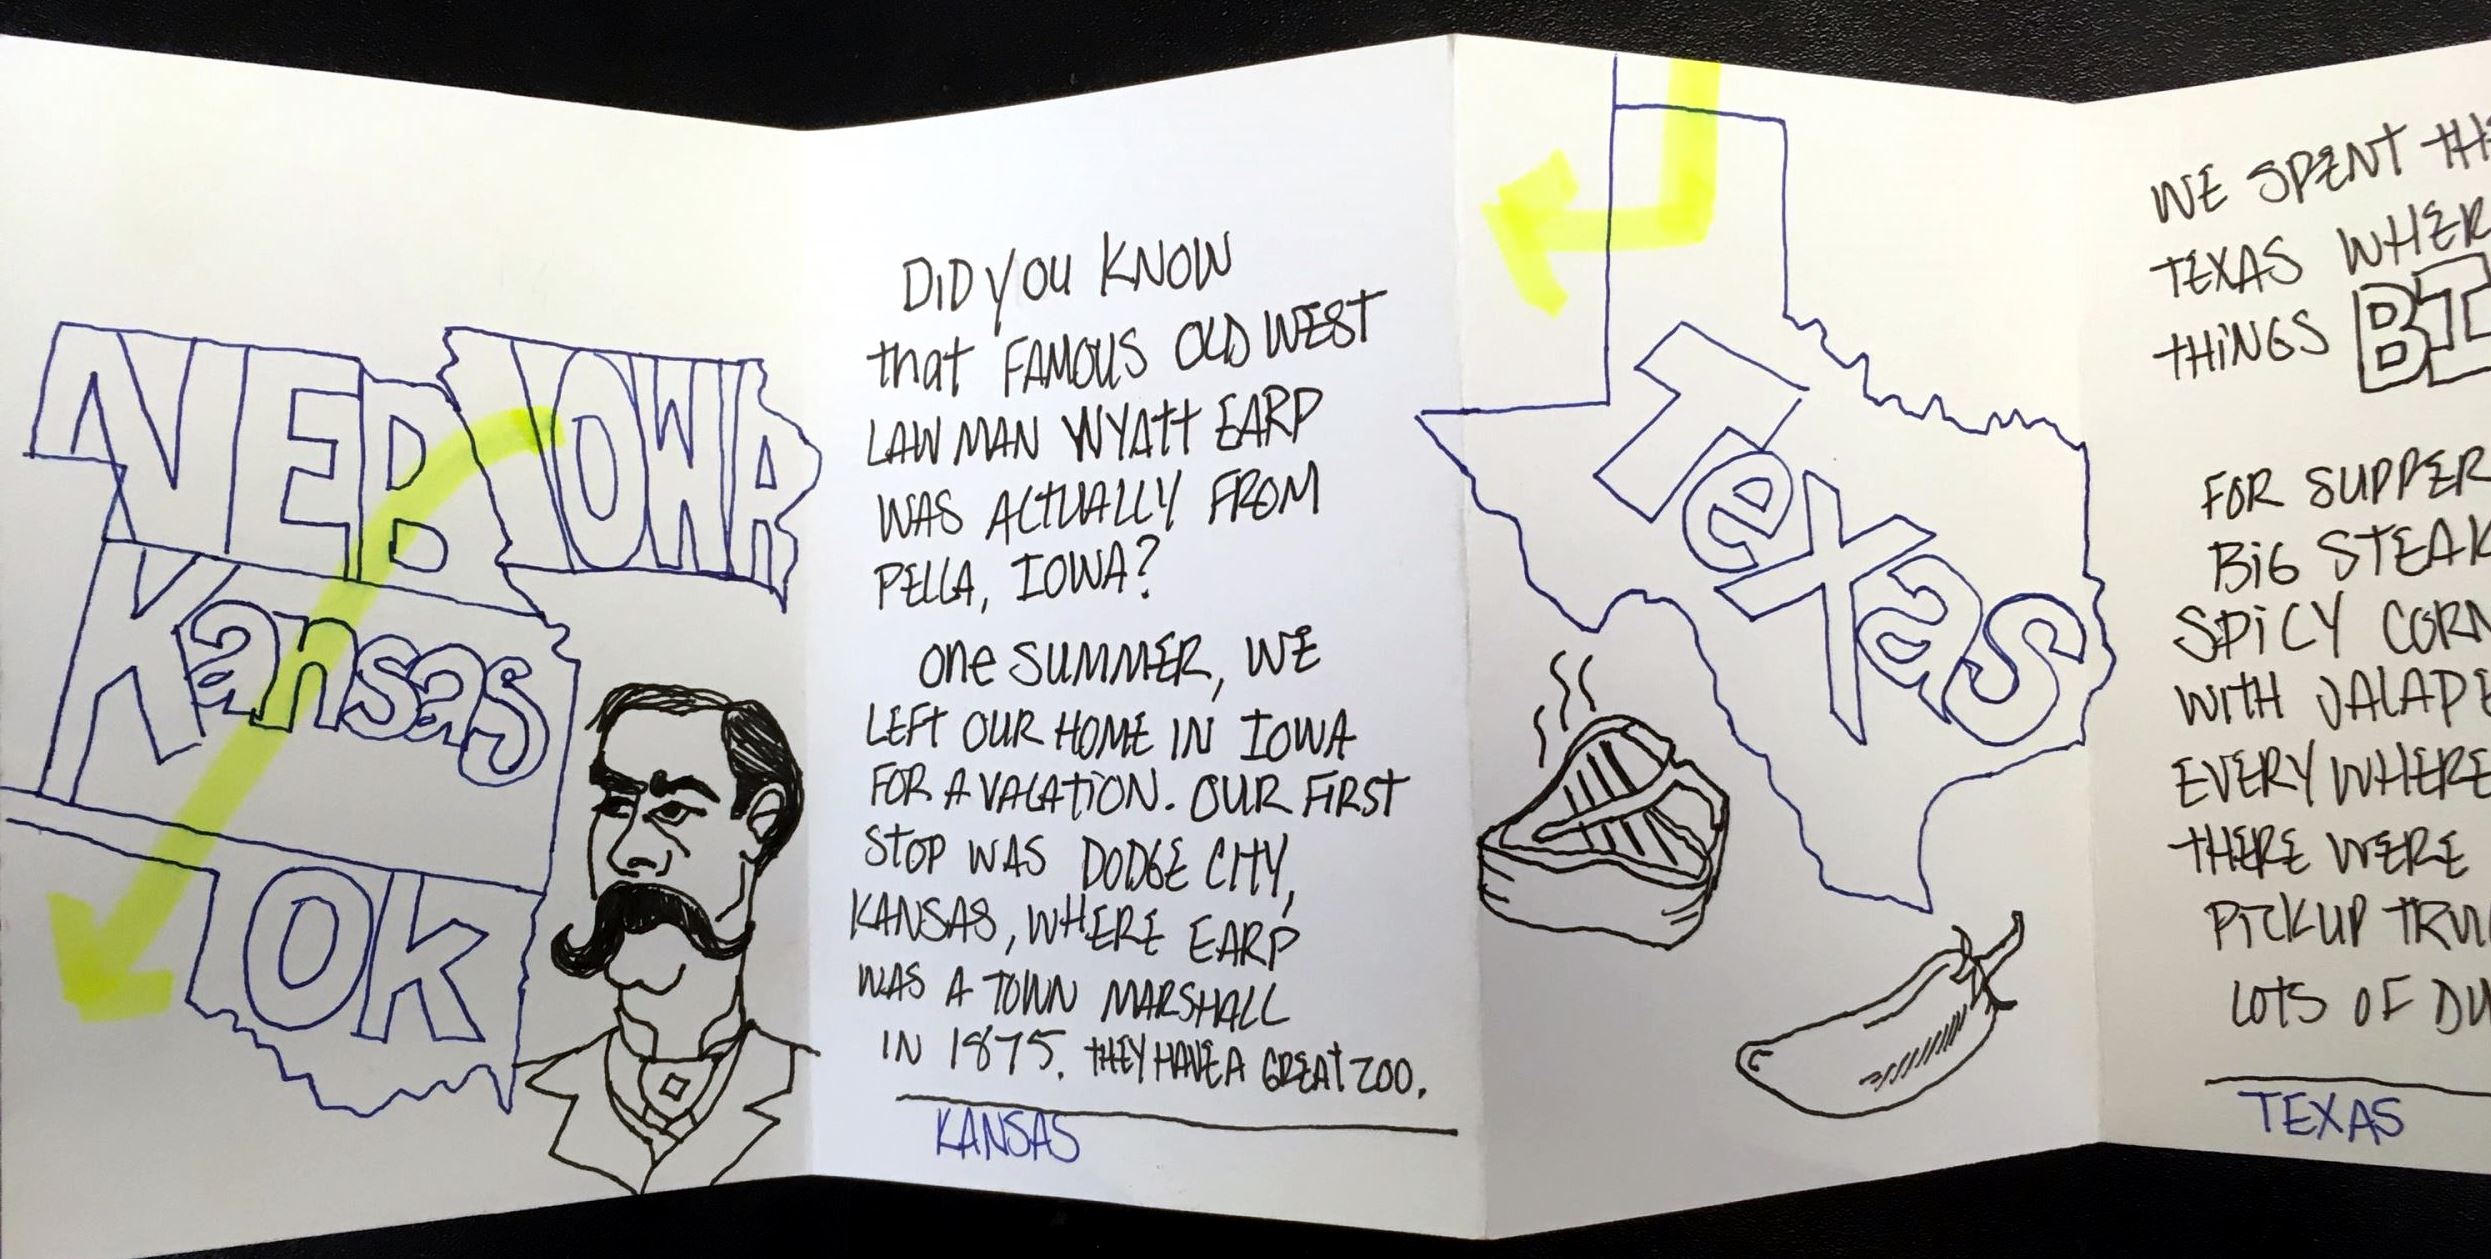 NEB
IOWA
Kansas
OK
DiD you KNOW
that FAMOUS OLD WEST
LAW MAN WYAtt EARP
WAS ACTUALLY FROM
PELLA, IOWA?
one SUMMER, WE
LEFT OUR HOME IN IOWA
FOR A VACATiON. OUR FiRST
StOP WAS DODGE CITY,
KANSAS, WHERE EARP
WAS A TOWN MARSHALL
IN 1875. tHEY HAVE A GREAt ZOO.
KANSAS
Texas
WE SPENT
TEXAS
tHiNGS
FOR SUPPER
BiG
SPiCY
WitH
EVERYWHERE
tHERE WERE
PiCKUP
LOtS OF
TEXAS